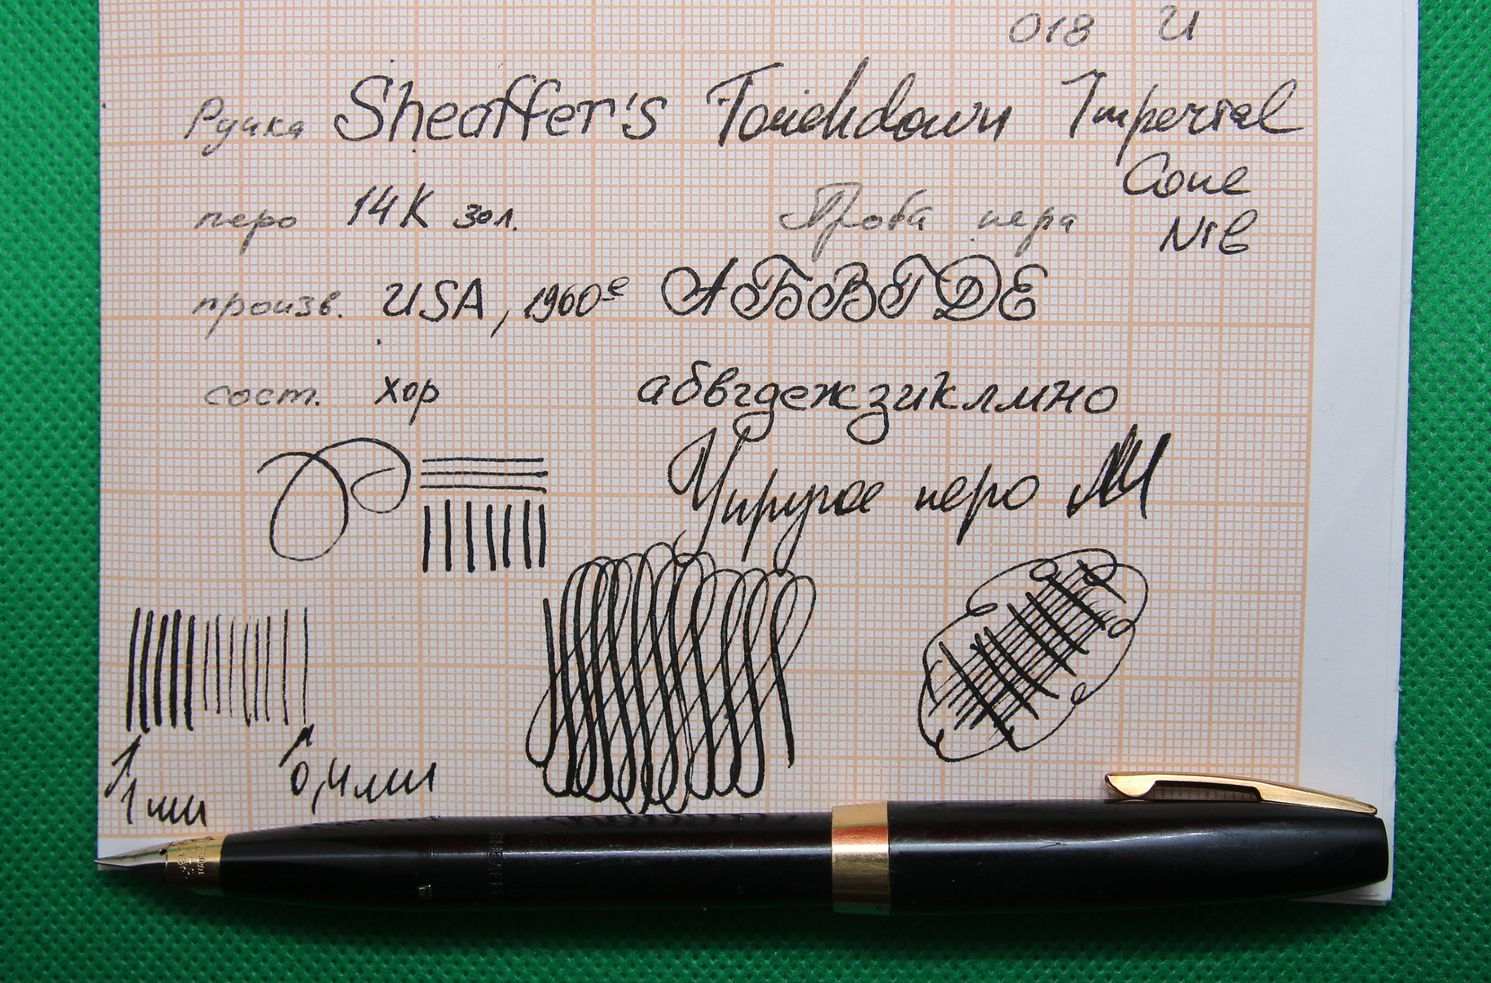 018 И
Ручка Sheaffer's Touchdown Imperial
Cone
перо 14К зол. Проба пера
Nib
произв. USA, 1960е АБВГДЕ
сост. хор абвгдежзиклмно
Упругое перо М
1мм 0,4мм